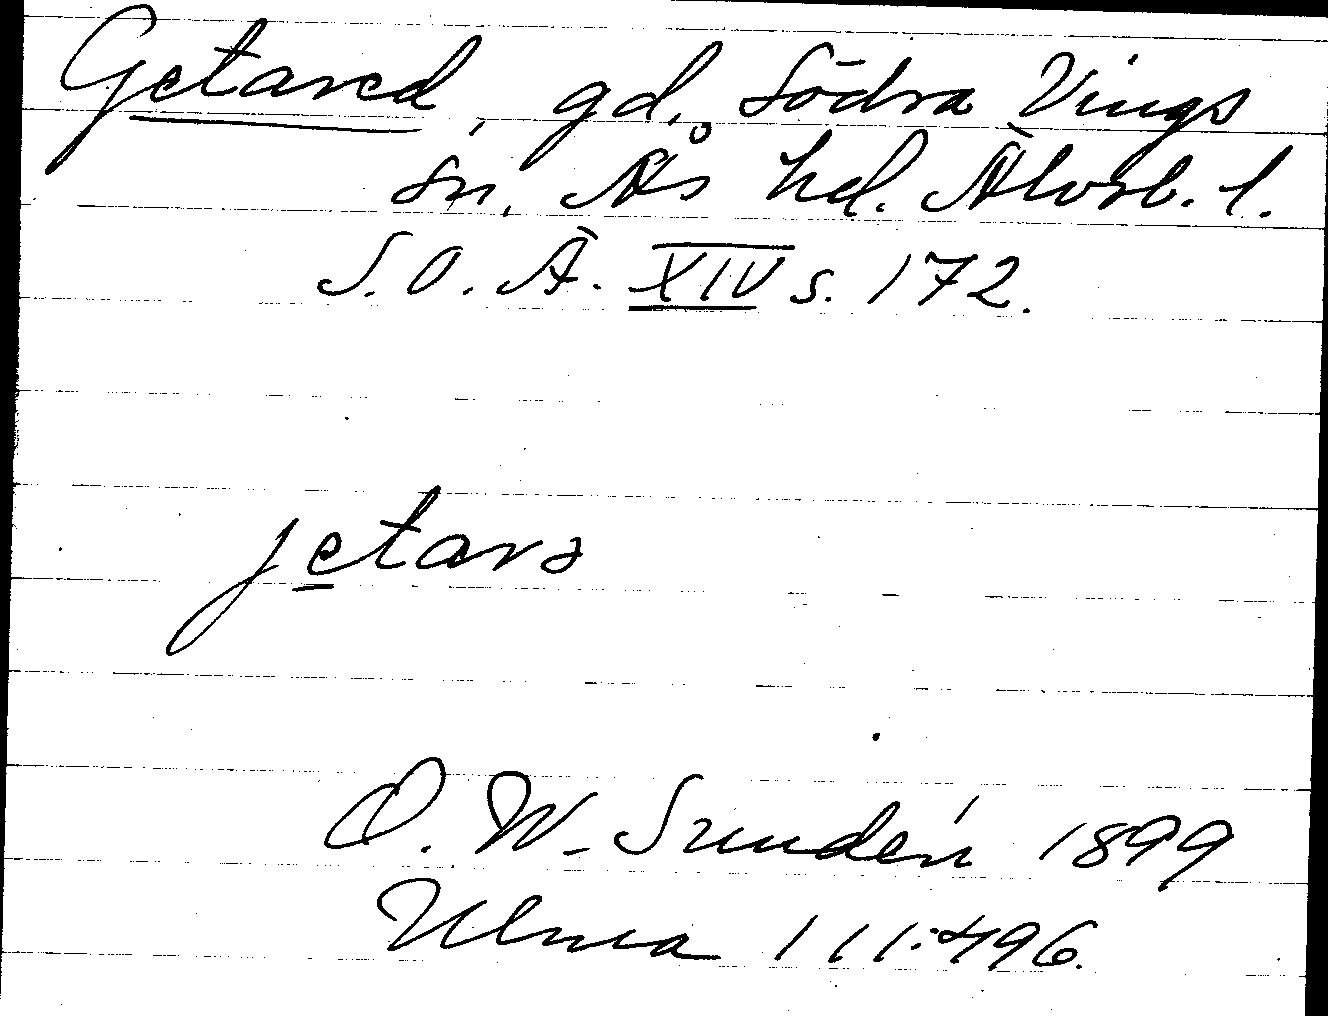 Getared, gd. Södra Vings
sn. Ås hd. Älvsb. l.
S.O.Ä. XIV s. 172.
jetarə
O. W. Sundén 1899
Ulma 111:496.